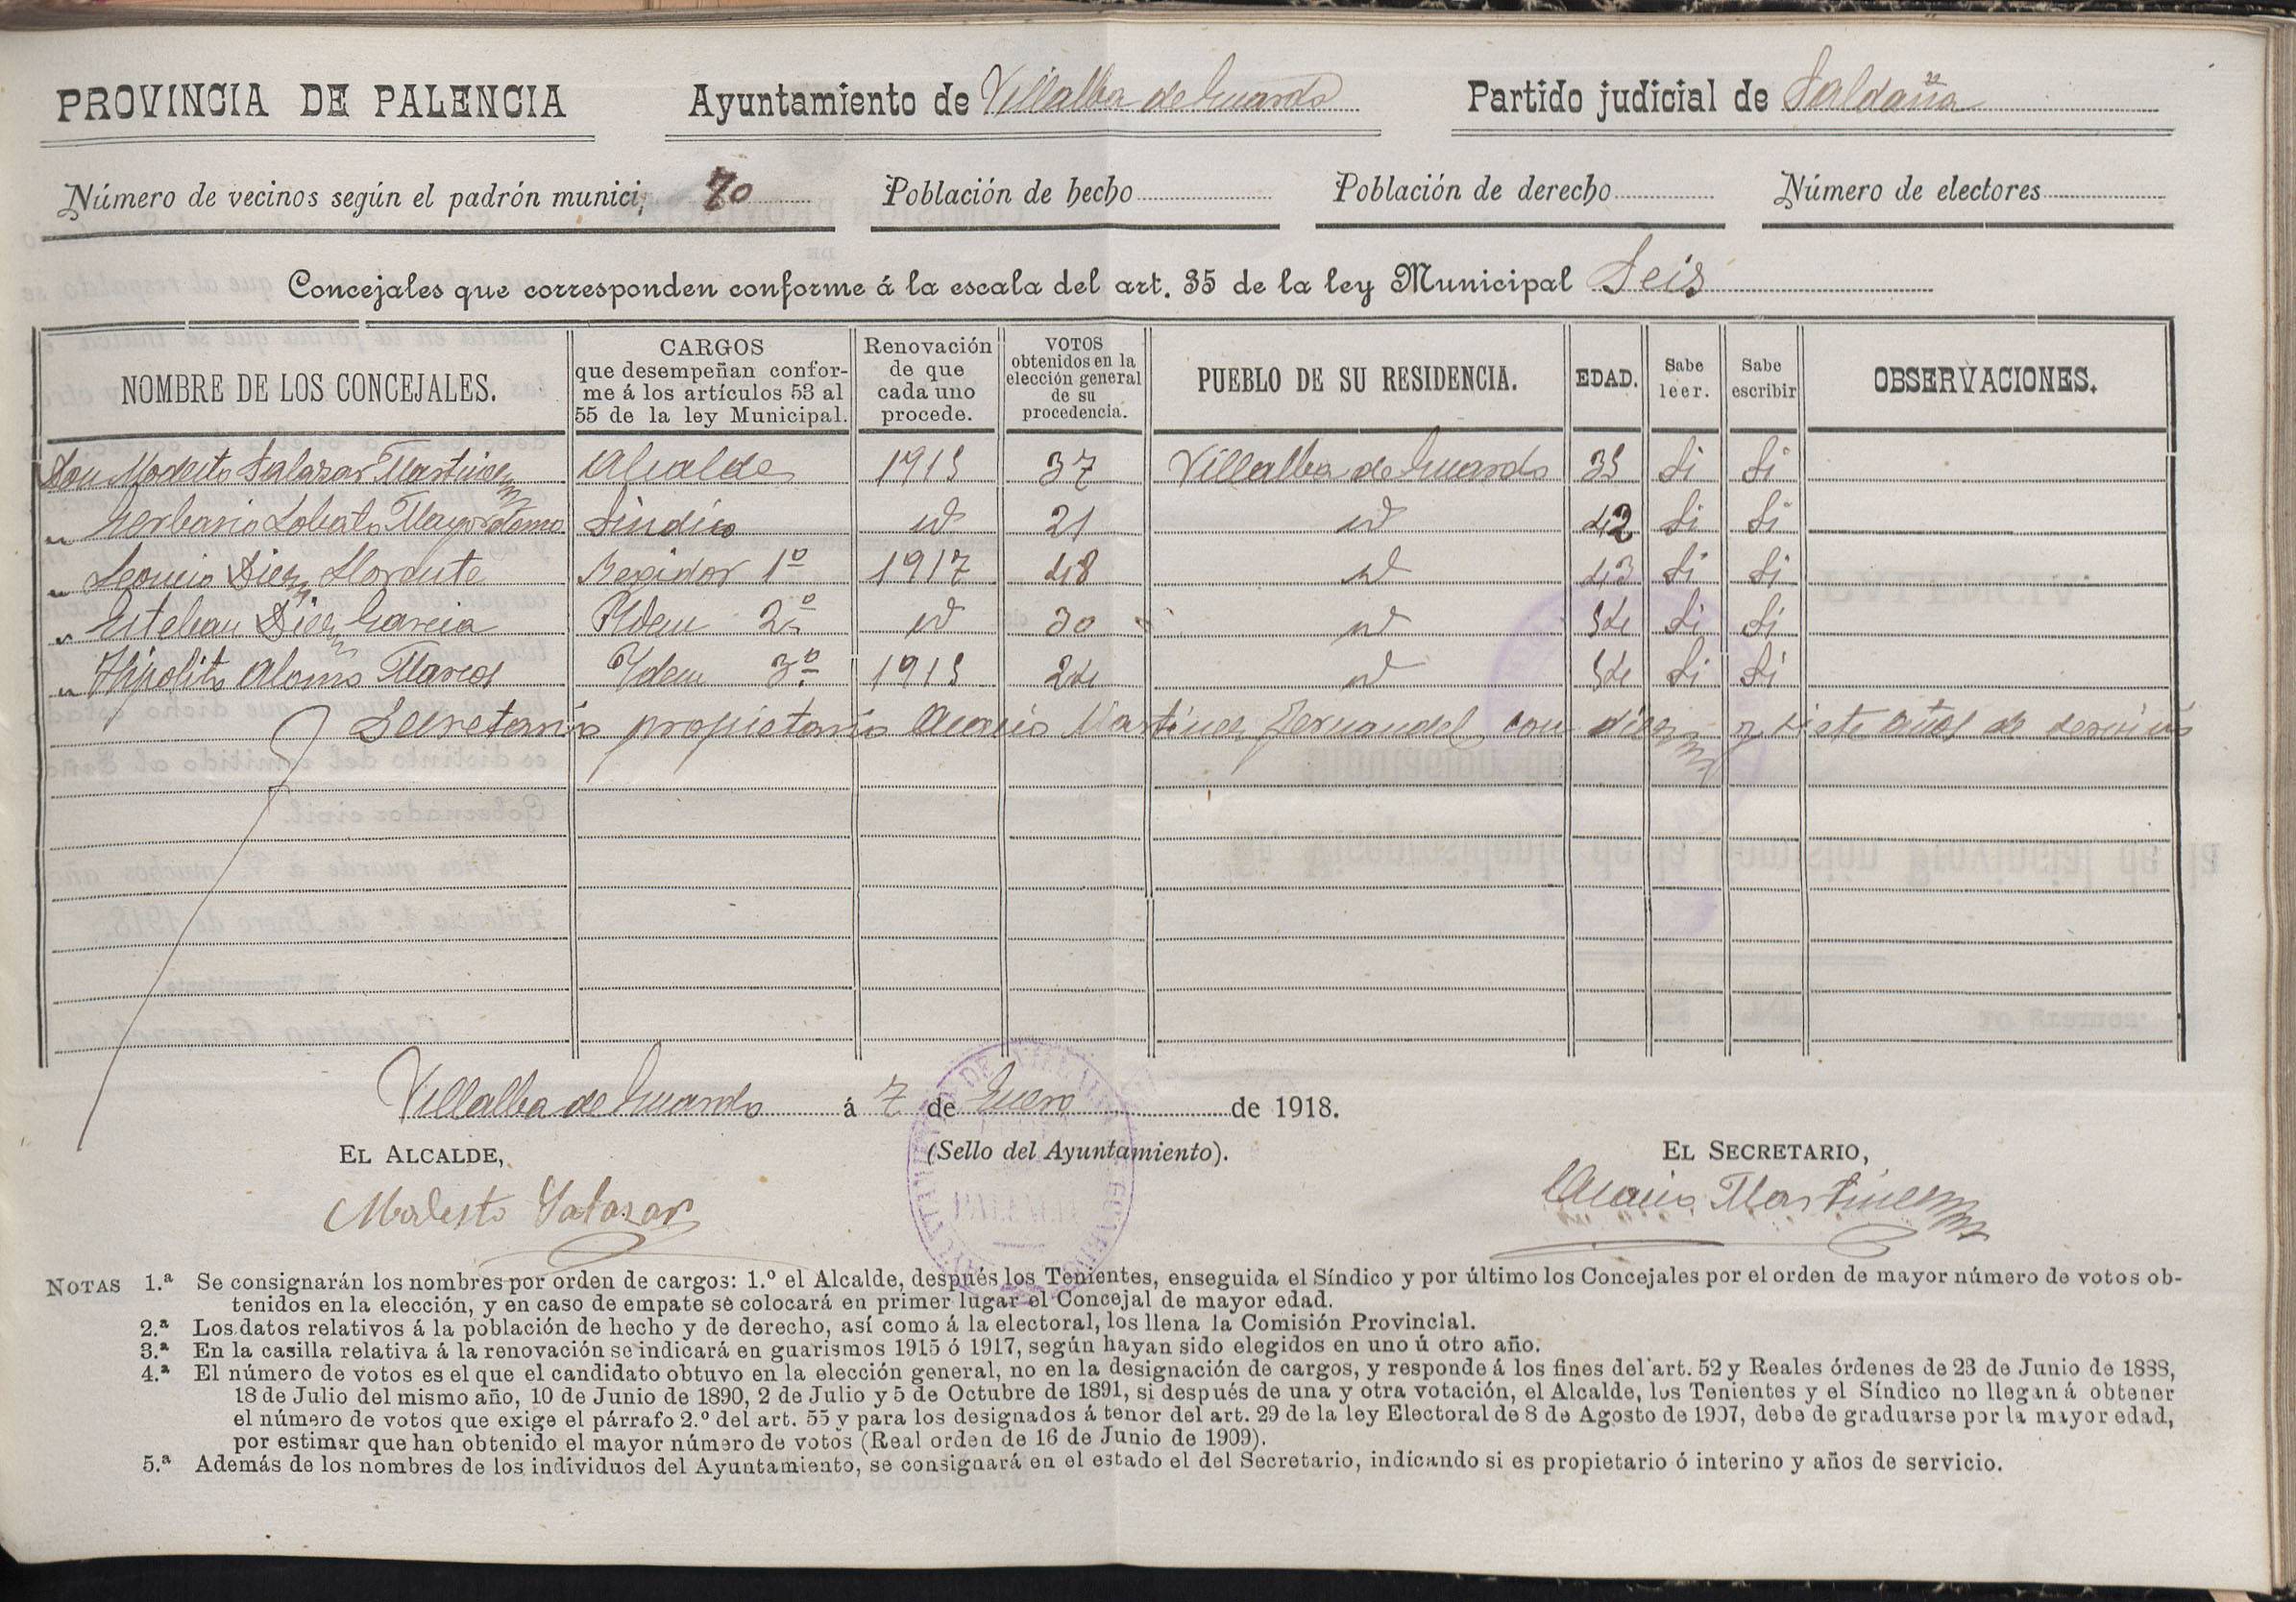 PROVINCIA DE PALENCIA Ayuntamiento de Villalba de Guardo Partido judicial de Saldaña
Número de vecinos según el padrón munici 70 Población de hecho Población de derecho Número de electores
Concejales que corresponden conforme á la escala del art. 35 de la ley Municipal Seis
NOMBRE DE LOS CONCEJALES. CARGOS que desempeñan conforme á los artículos 53 al 55 de la ley Municipal. Renovación de que cada uno procede. VOTOS obtenidos en la elección general de su procedencia. PUEBLO DE SU RESIDENCIA. EDAD. Sabe leer. Sabe escribir OBSERVACIONES.
Don Modesto Salazar Martinez Alcalde 1915 37 Villalba de Guardo 35 Si Si
" Gerbasio Lobato Mayordomo Sindico id 21 id 42 Si Si
" Leoncio Diez Llorente Regidor 1º 1917 48 id 43 Si Si
" Esteban Diez Garcia Ydem 2º id 30 id 54 Si Si
" Hipolito Alonso Marcos Ydem 3º 1915 24 id 54 Si Si
Secretario propietario Acacio Martinez Fernandez con diez y siete años de servicios
Villalba de Guardo á 7 de Enero de 1918.
EL ALCALDE, (Sello del Ayuntamiento). EL SECRETARIO,
Modesto Salazar Acacio Martinez
NOTAS 1.ª Se consignarán los nombres por orden de cargos: 1.º el Alcalde, después los Tenientes, enseguida el Síndico y por último los Concejales por el orden de mayor número de votos ob-
tenidos en la elección, y en caso de empate se colocará en primer lugar el Concejal de mayor edad.
2.ª Los datos relativos á la población de hecho y de derecho, así como á la electoral, los llena la Comisión Provincial.
3.ª En la casilla relativa á la renovación se indicará en guarismos 1915 ó 1917, según hayan sido elegidos en uno ú otro año.
4.ª El número de votos es el que el candidato obtuvo en la elección general, no en la designación de cargos, y responde á los fines del art. 52 y Reales órdenes de 23 de Junio de 1888,
18 de Julio del mismo año, 10 de Junio de 1890, 2 de Julio y 5 de Octubre de 1891, si después de una y otra votación, el Alcalde, los Tenientes y el Síndico no llegan á obtener
el número de votos que exige el párrafo 2.º del art. 55 y para los designados á tenor del art. 29 de la ley Electoral de 8 de Agosto de 1907, debe de graduarse por la mayor edad,
por estimar que han obtenido el mayor número de votos (Real orden de 16 de Junio de 1909).
5.ª Además de los nombres de los individuos del Ayuntamiento, se consignará en el estado el del Secretario, indicando si es propietario ó interino y años de servicio.